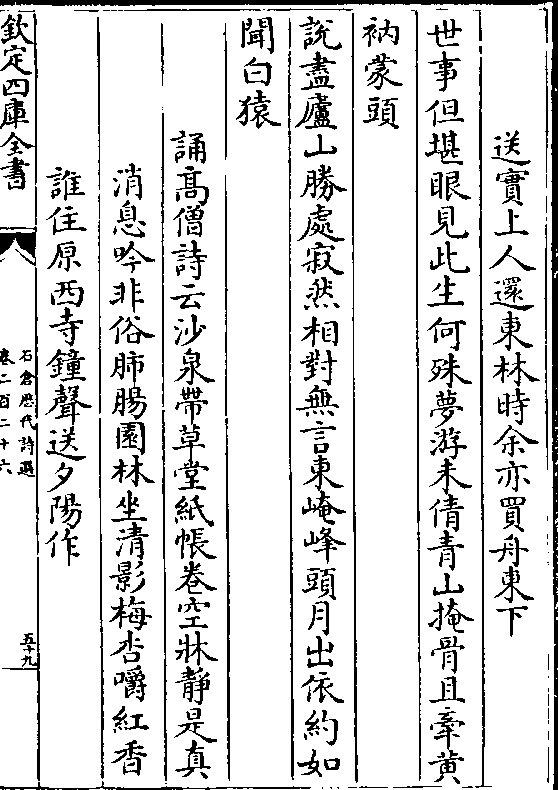 送實上人還東林時余亦買舟東下
世事但堪眼見此生何殊夢游未倩青山掩骨且牽黄
衲蒙頭
說盡廬山勝處寂然相對無言東崦峰頭月出依約如
聞白猿
誦髙僧詩云沙泉帶草堂紙帳卷空牀靜是真
消息吟非俗肺腸園林坐清影梅杏嚼紅香
誰住原西寺鐘聲送夕陽作
欽定四庫全書
石倉歴代詩選
卷二百二十六
五十九